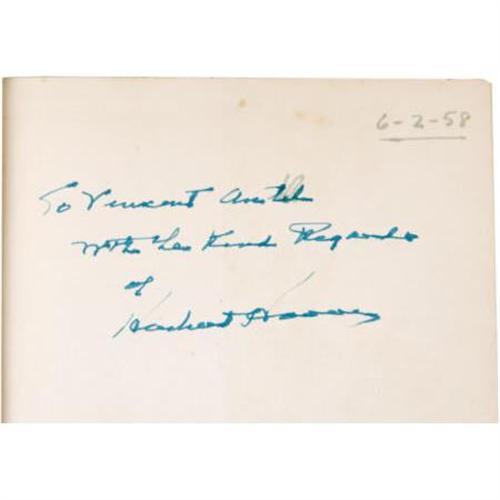 6-2-58
To Vincent Astor
With the Kind Regards
of
Herbert Hoover